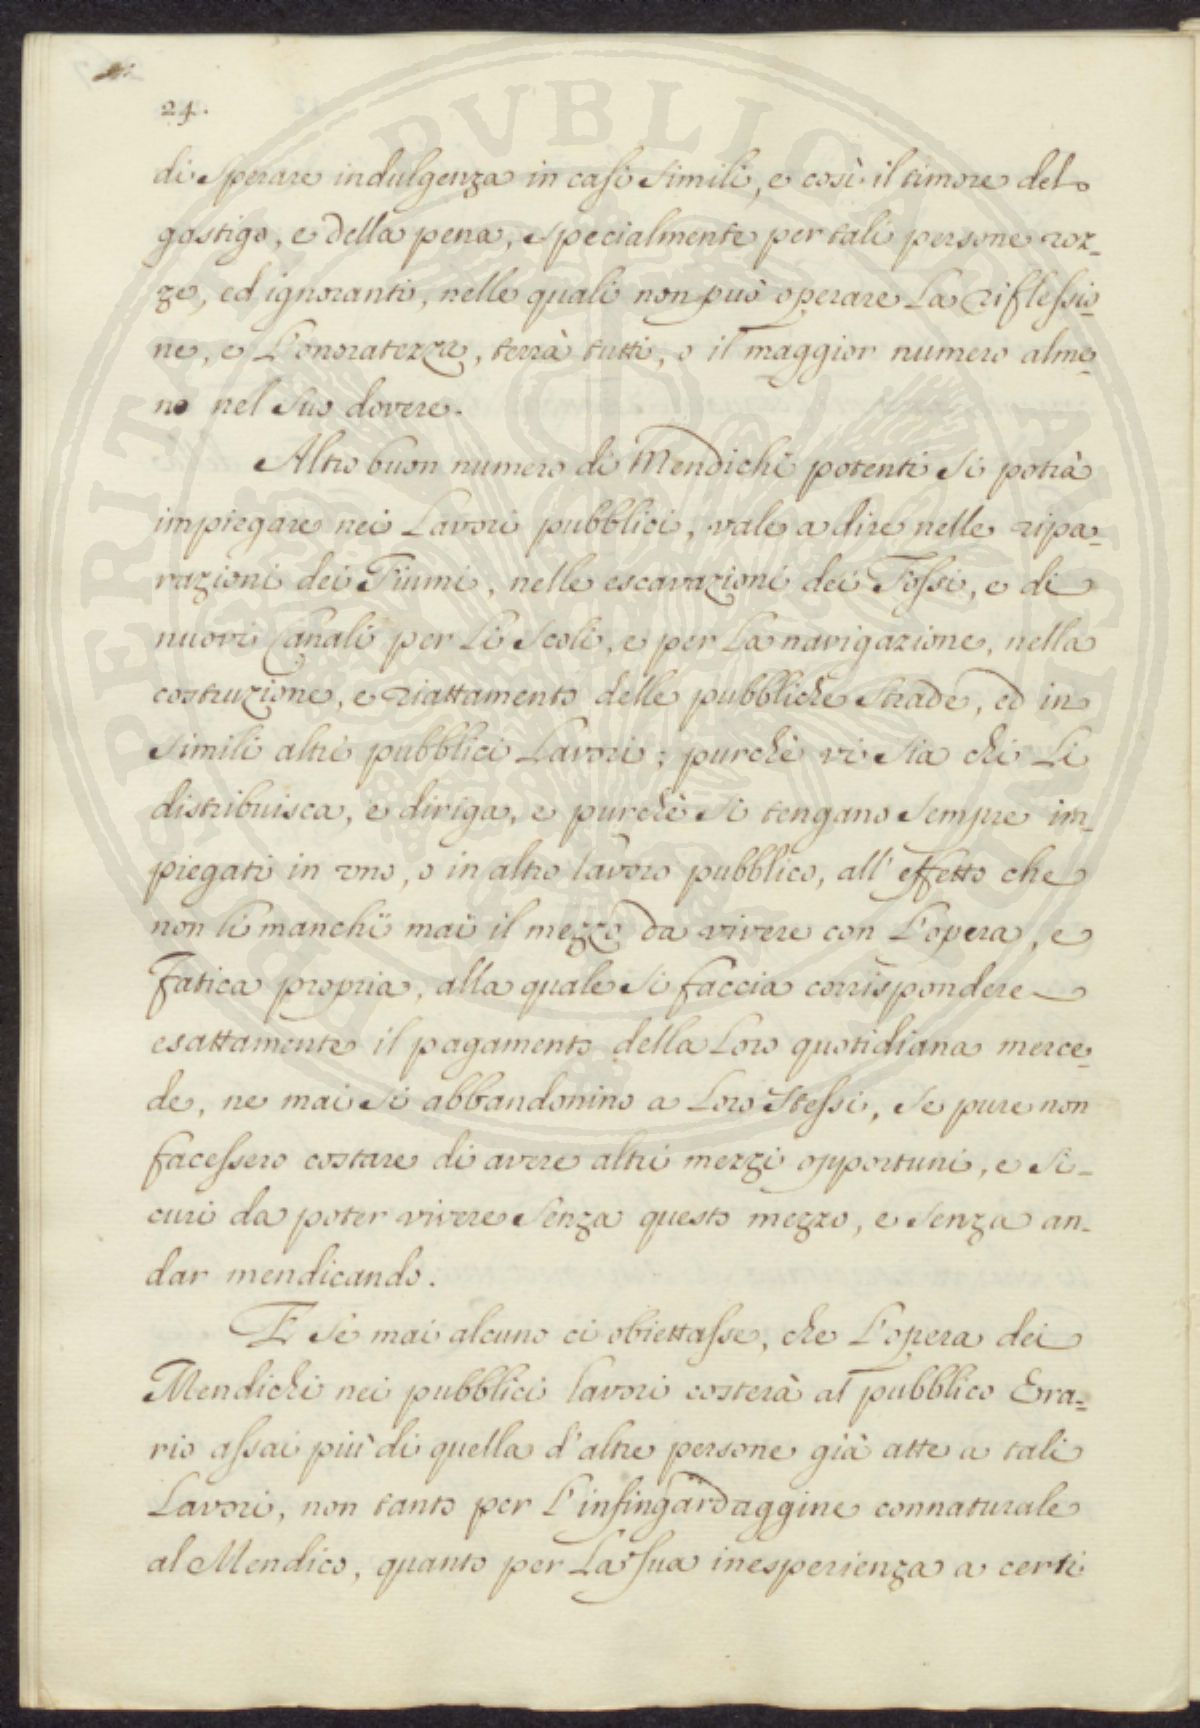 24.
di sperare indulgenza in casi simili, e così il timore del
gastigo, e della pena, specialmente per tali persone roz-
ze, ed ignoranti, nelle quali non può operare la riflessio-
ne, e l'onoratezza, terrà tutti, o il maggior numero alme-
no nel suo dovere.
Altro buon numero di Mendichi potenti si potrà
impiegare nei Lavori pubblici, vale a dire nelle ripa-
razioni dei Fiumi, nelle escavazioni dei Fossi, e di
nuovi Canali per li Scoli, e per la navigazione, nella
costruzione, e riattamento delle pubbliche Strade, ed in
simili altri pubblici Lavori; purchè vi sia chi li
distribuisca, e diriga, e purchè si tengano sempre im-
piegati in uno, o in altro lavoro pubblico, all'effetto che
non li manchi mai il mezzo da vivere con l'opera, e
fatica propria, alla quale si faccia corrispondere
esattamente il pagamento della loro quotidiana merce-
de, ne mai si abbandonino a loro stessi, se pure non
facessero costare di avere altri mezzi opportuni, e si-
curi da poter vivere senza questo mezzo, e senza an-
dar mendicando.
E se mai alcuno ci obiettasse, che l'opera dei
Mendichi nei pubblici lavori costerà al pubblico Era-
rio assai più di quella d'altre persone già atte a tali
Lavori, non tanto per l'infingardaggine connaturale
al Mendico, quanto per la sua inesperienza a certi